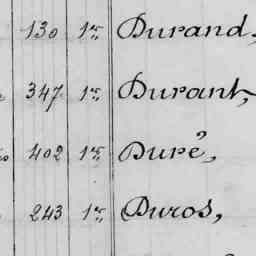 130 1er Durand,
347 1er Durant,
402 1er Duré,
243 1er Duros,